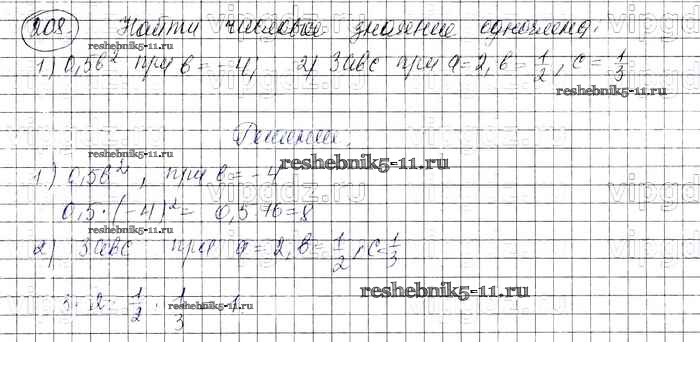 208. Найти числовое значение одночлена.
1) 0,5b² при b = -4; 2) 3abc при a = 2, b = 1/2, c = 1/3
reshebnik5-11.ru
reshebnik5-11.ru
Решение.
reshebnik5-11.ru
reshebnik5-11.ru
1) 0,5b², при b = -4
0,5·(-4)² = 0,5·16 = 8
reshebnik5-11.ru
2) 3abc при a = 2, b = 1/2, c = 1/3
reshebnik5-11.ru
3 · 2 · 1/2 · 1/3 = 1
reshebnik5-11.ru